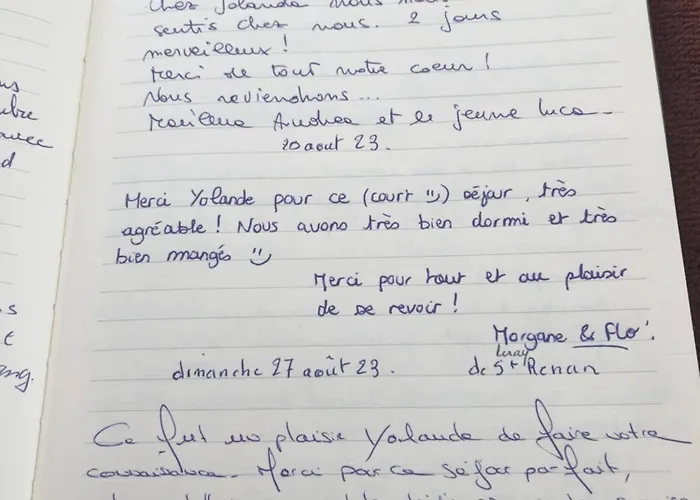 Chez Yolanda nous nous
sentis chez nous. 2 jours
merveilleux !
Merci de tout notre coeur !
Nous reviendrons...
Marilena Andrea et le jeune Luca -
20 aout 23.
Merci Yolande pour ce (court ) séjour, très
agréable ! Nous avons très bien dormi et très
bien mangés
Merci pour tout et au plaisir
de se revoir !
Morgane & Flo'.
dimanche 27 août 23.
de St Renan
Ce fut un plaisir Yolande de faire votre
connaissance. Merci par ce séjour parfait,
bre
avec
d
s
t
ng.